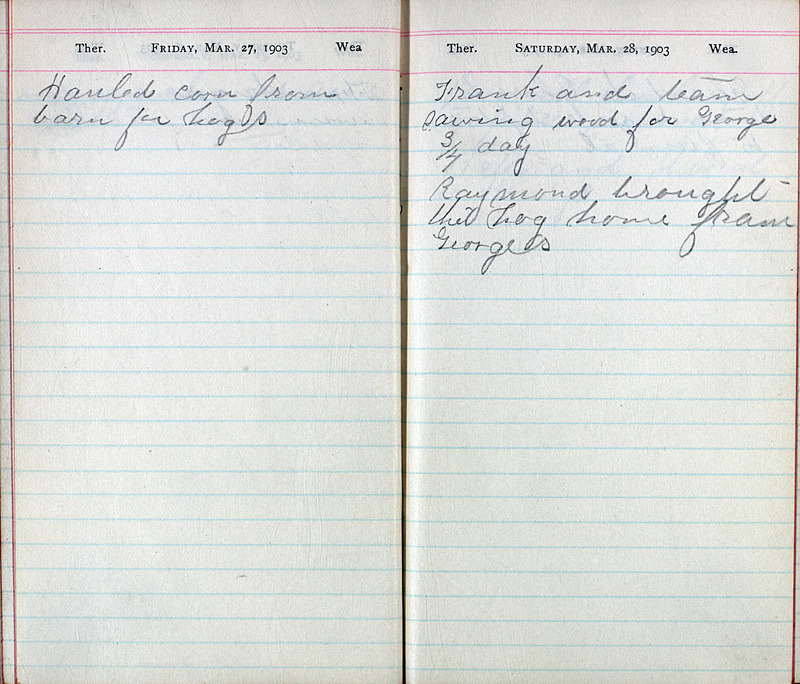 Ther. FRIDAY, MAR. 27, 1903 Wea
Hauled corn from
barn for hogs
Ther. SATURDAY, MAR. 28, 1903 Wea.
Frank and team
sawing wood for George
3/4 day
Raymond brought
the hog home from
Georges